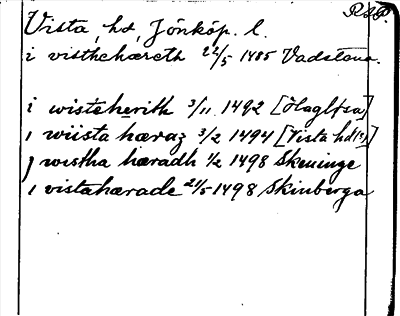 RAP.
Vista hd, Jönköp. l.
i visthehæreth 22/5 1485 Vadstena.
i wisteherith 3/11 1492 [Haglfsa]
i wiista hæraz 3/2 1494 [Vista hd(s)]
J wistha hæradh 1/2 1498 Skeninge
i vistahærade 21/5 1498 Skinberga